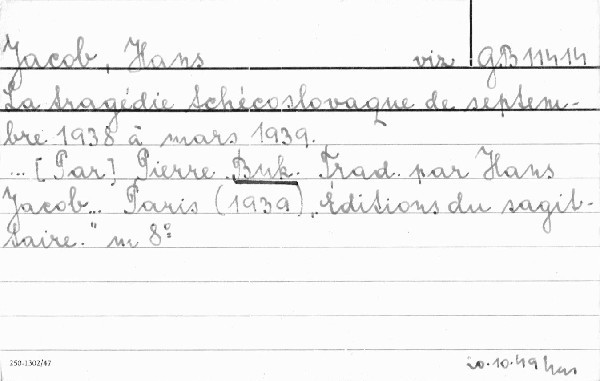 Jacob, Hans viz GB 11414
La tragédie tchécoslovaque de septem-
bre 1938 à mars 1939.
... [Par] Pierre Buk. Trad. par Hans
Jacob... Paris (1939) „Éditions du sagit-
taire." m 8°
250-1302/47 20.10.49